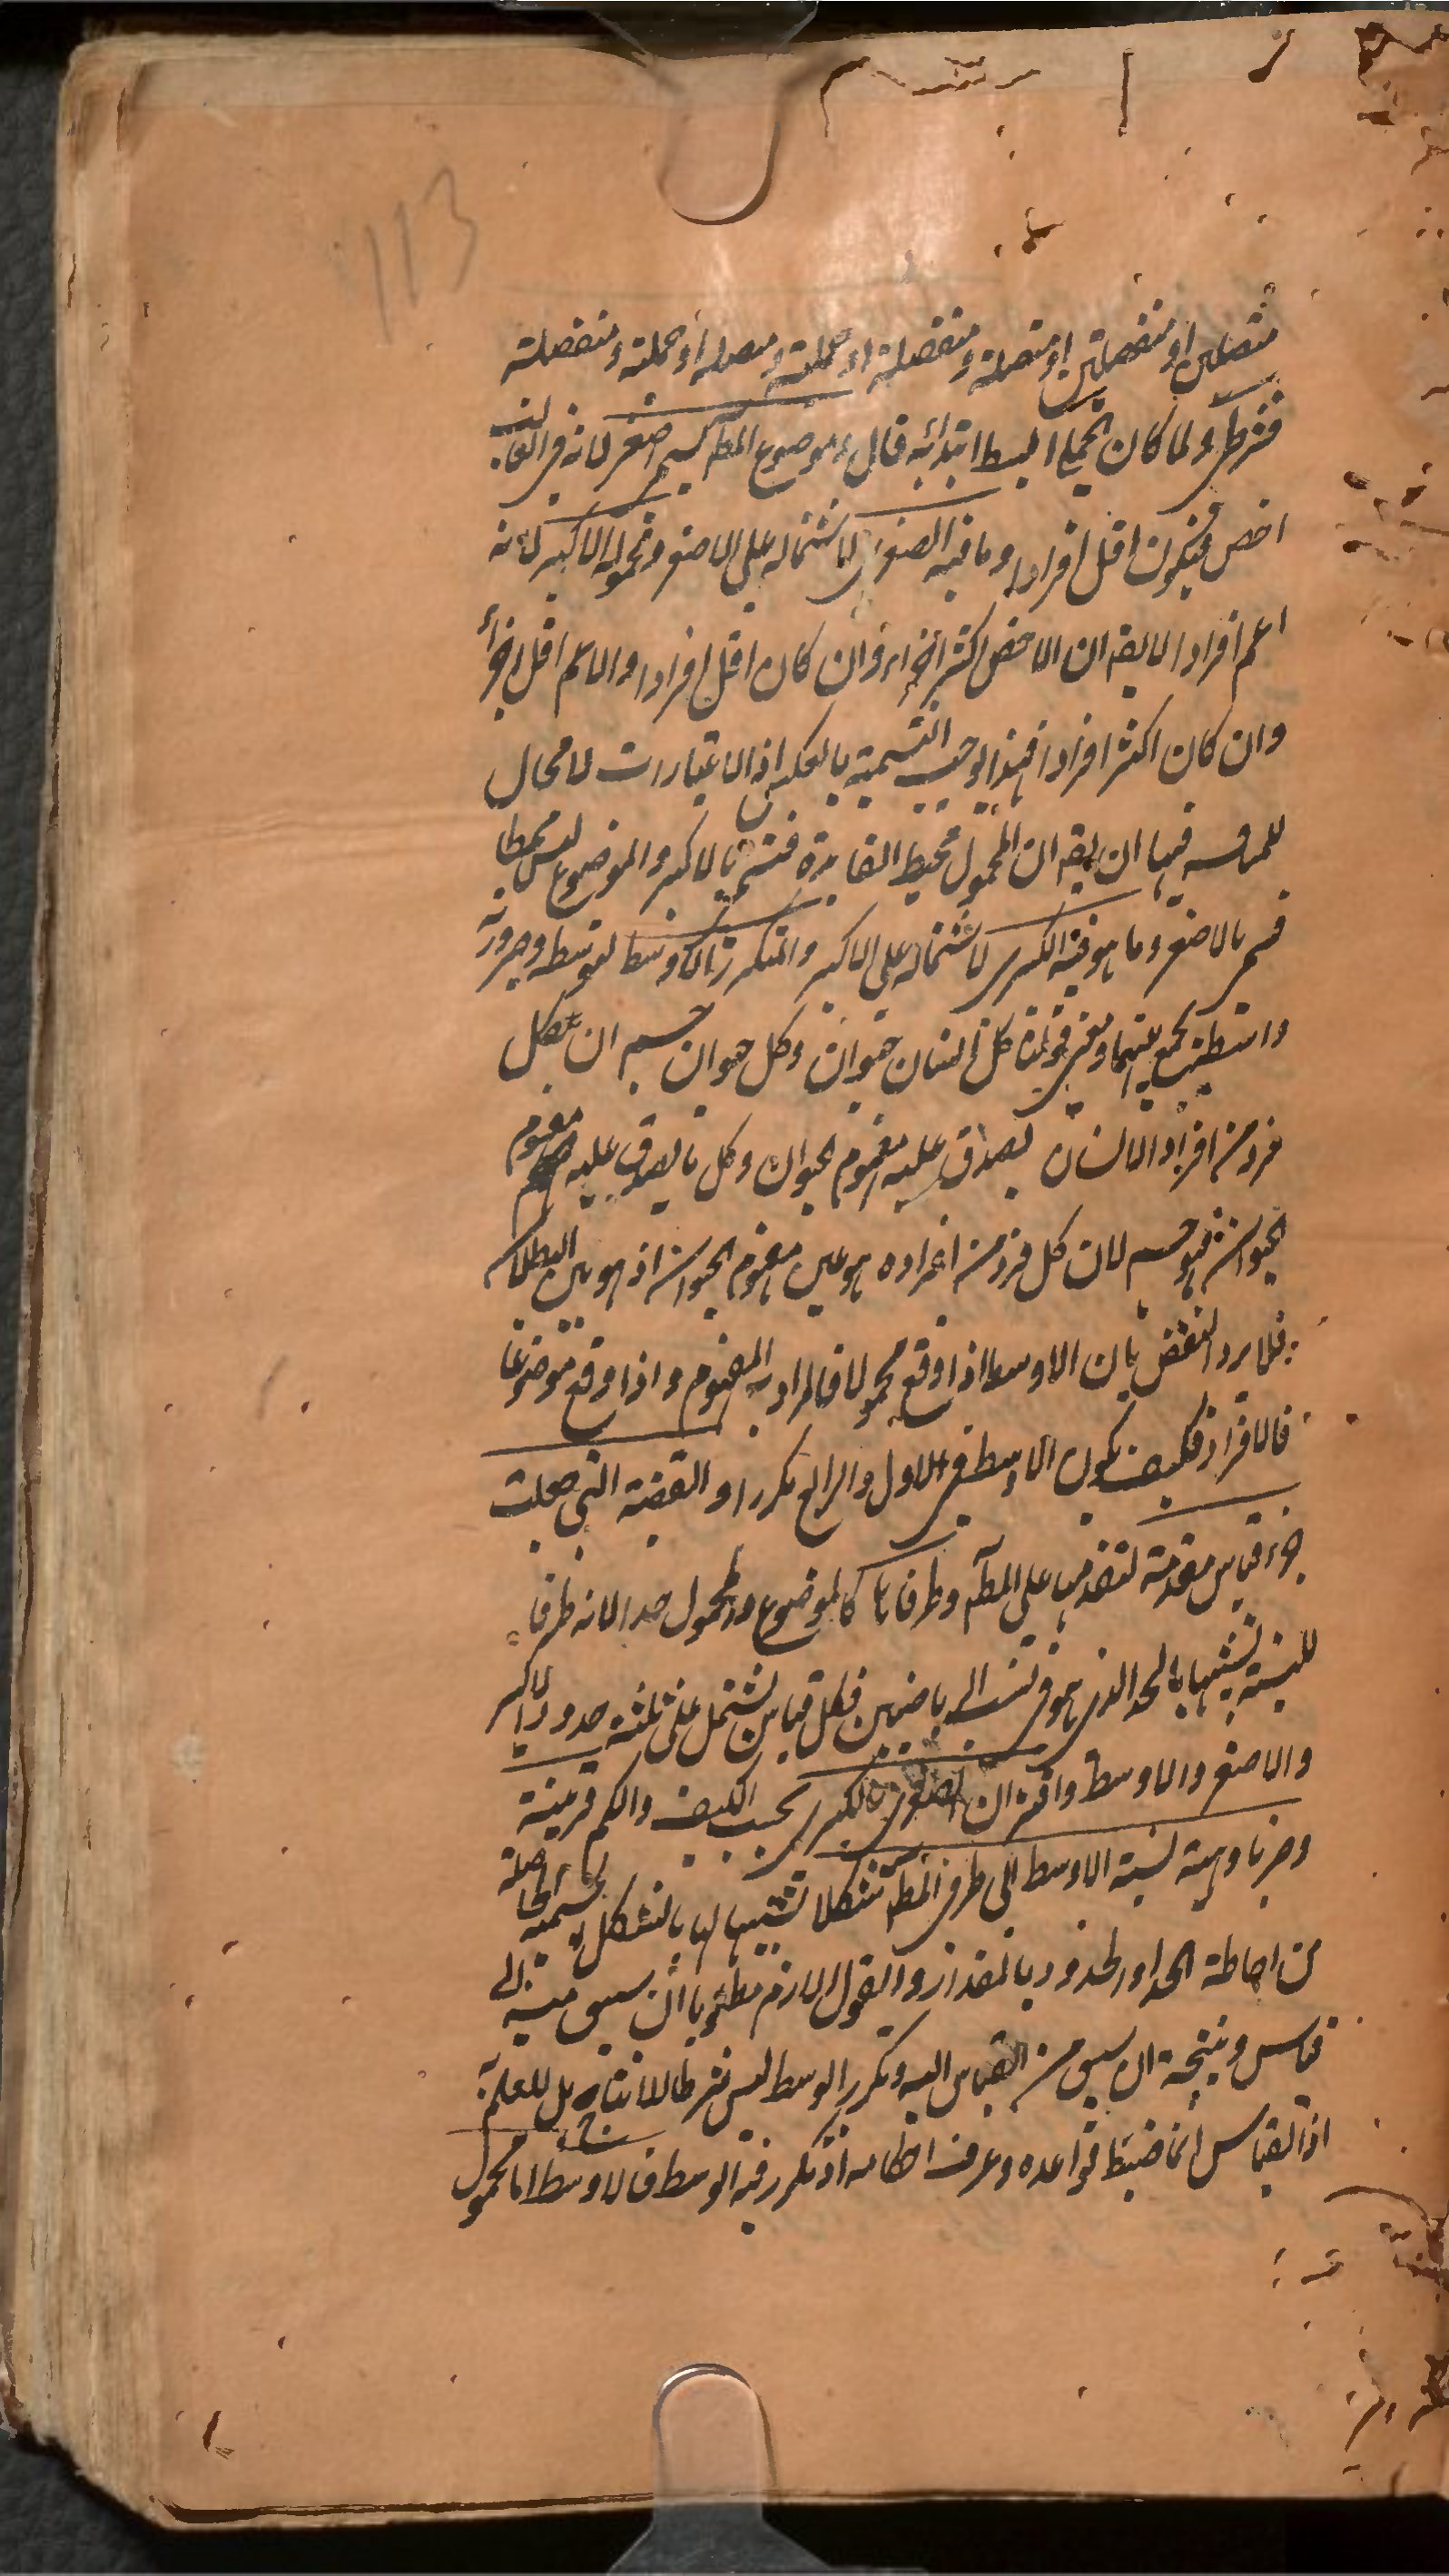 113
متصلتين او منفصلتين او متصلة ومنفصلة او حملية ومتصلة او حملية ومنفصلة
فشرطي ولما كان الحملي ابسط ابتدأ به قال وموضوع المط يسمى اصغر لانه في الغالب
اخص فيكون اقل افرادا وما فيه الصغرى لاشتماله على الاصغر ومحموله الاكبر لانه
اعم افرادا لا يقه ان الاخص اكثر اجزاء وان كان اقل افرادا والاعم اقل اجزاء
وان كان اكثر افرادا فهذا يوجب التسمية بالعكس اذ الاعتبارات لا مجال
للمناقشه فيها ان يقه ان المحمول محيط الفايدة فسمى بالاكبر والموضوع ليس محيطا
فسمى بالاصغر وما هو فيه الكبرى لاشتماله على الاكبر والمتكرر بينهما اوسط لتوسطه وصيرورته
واسطة يجمع بينهما ومعنى قولنا كل انسان حيوان وكل حيوان جسم ان كل
فرد من افراد الانسان يصدق عليه مفهوم الحيوان وكل ما يصدق عليه مفهوم
الحيوان فهو جسم لان كل فرد من افراده هو عين مفهوم الحيوان اذ هو بين البطلان
فلا يرد النقض بان الاوسط اذا وقع محمولا فالمراد به المفهوم واذا وقع موضوعا
فالافراد فكيف يكون الاوسط في الاول والرابع مكررا والقضية التي جعلت
جزء قياس مقدمة لتقدمها على المط وطرفاها كالموضوع والمحمول حدا لانه طرف
للنسبة تشبيها بالحد الذي هو في نسب الرياضيين فكل قياس يشتمل على ثلثة حدود الاكبر
والاصغر والاوسط واقتران الصغرى بالكبرى بحسب الكيف والكم قرينة
وضربا وهيئة نسبة الاوسط الى طرفي المط شكلا تشبيها لها بالشكل الجسمية الحاصلة
من احاطة الحد او الحدود بالمقدار والقول اللازم مطلوبا ان سيق منه الى
قياس ونتيجة ان سيق من القياس اليه وتكرر الوسط ليس شرطا للانتاج بل للعلم به
اذ القياس انما ضبط قواعده وعرف احكامه اذ تكرر فيه الوسط فالاوسط اما محمول